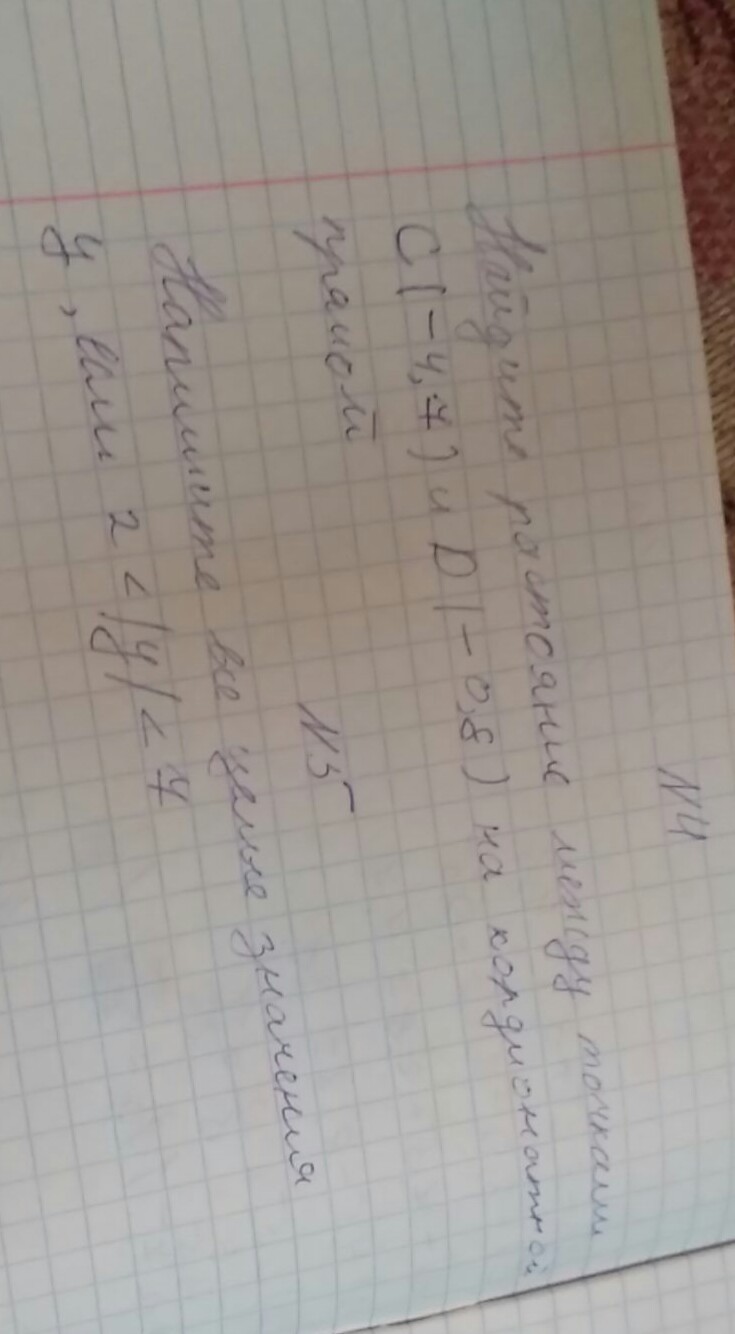 N4
Найдите растояние между точками
C(-4,7) и D(-0,8) на кордионатной
прямой
N5
Напишите все целые значения
y, если 2 < |y| < 7